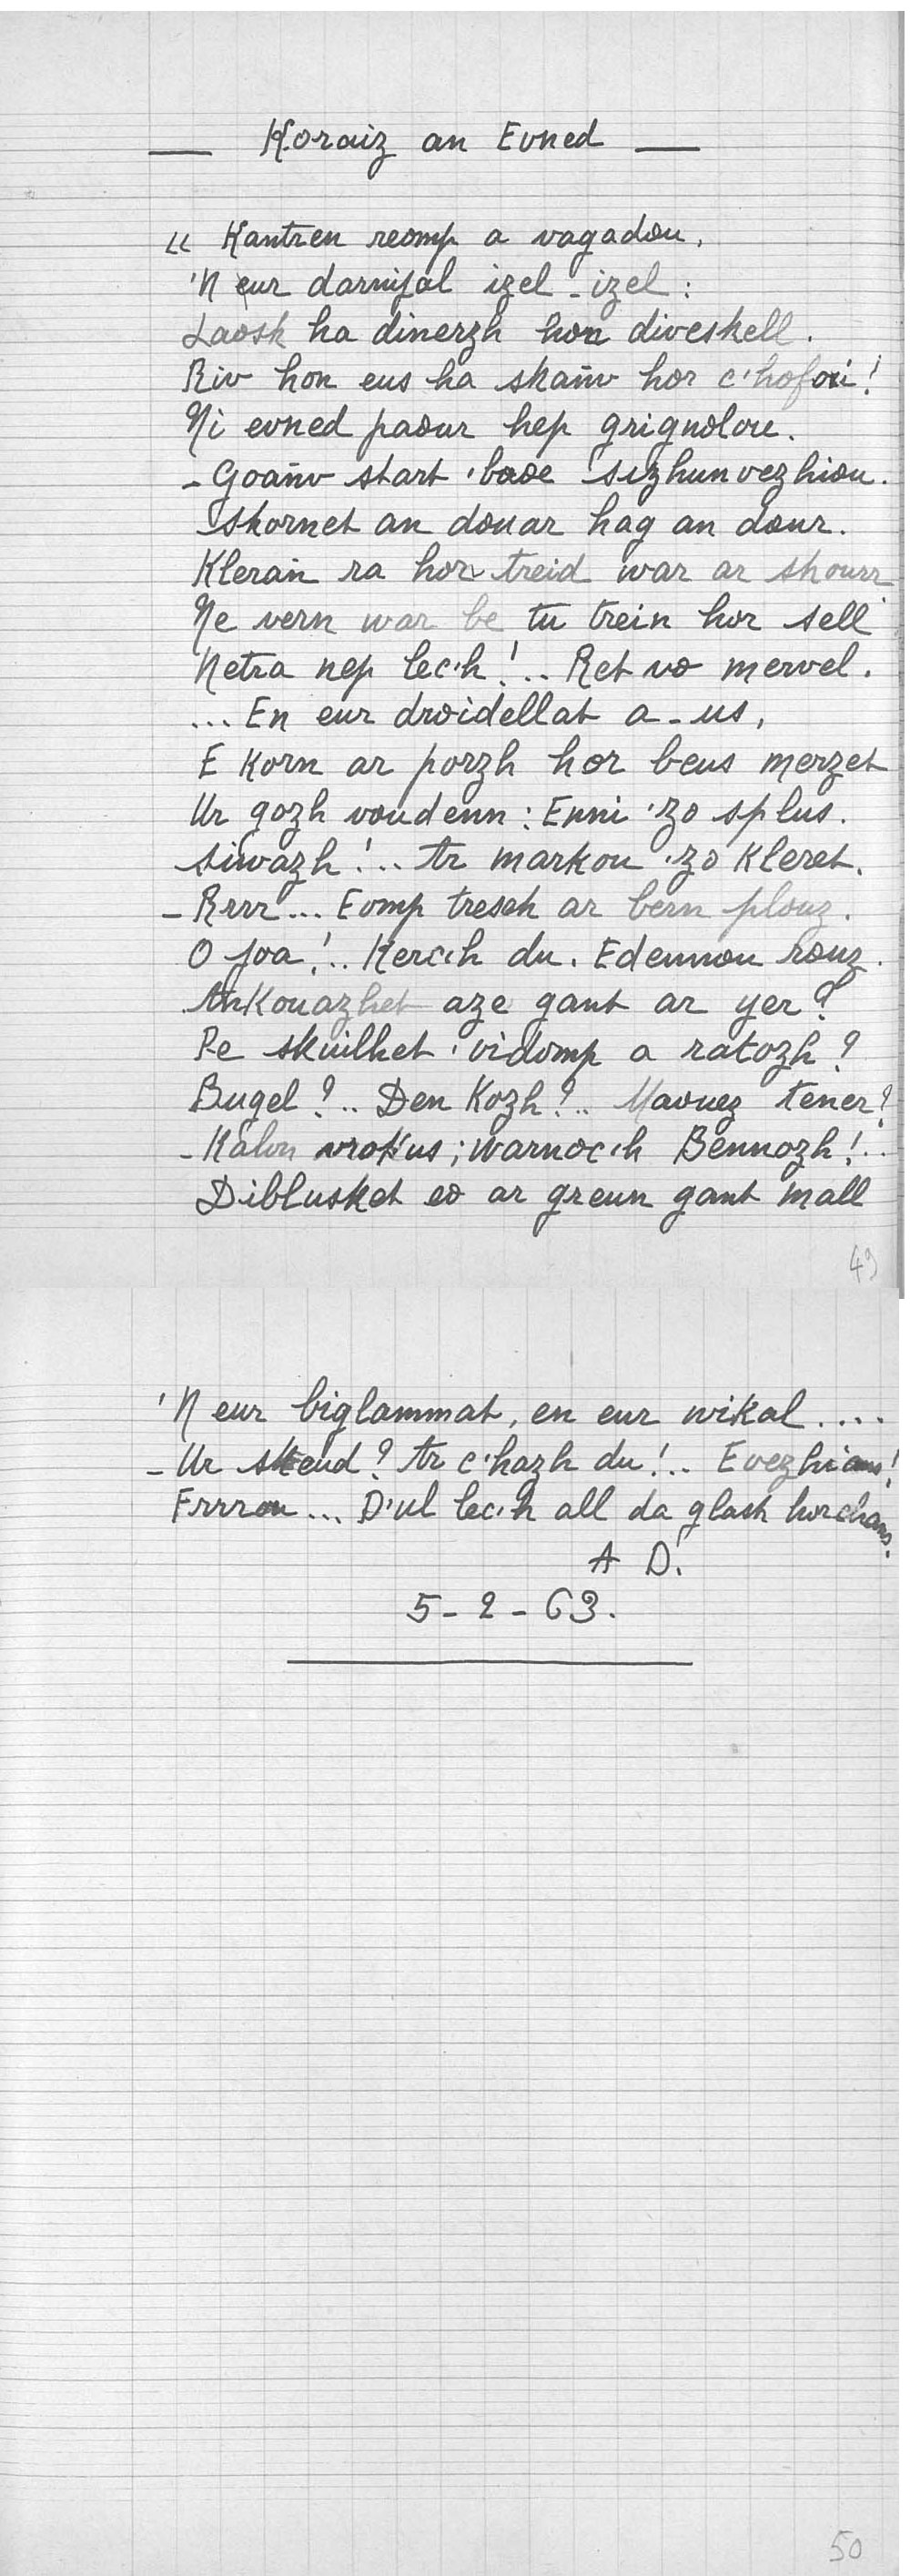 — Koraiz an Evned —
« Kantren reomp a vagadou,
'N eur darnijal izel - izel :
Laosk ha dinerzh hon diveskell.
Riv hon eus ha skañv hor c'hofoù !
Ni evned paour hep grignolou.
- Goañv start 'baoe sizhunvezhiou.
Skornet an douar hag an dour.
Klerañ ra hor treid war ar skourr
Ne vern war be tu trein hor sell
Netra nep lec'h !.. Ret vo mervel.
... En eur droidellat a-us,
E Korn ar porzh hor beus merzet
Ur gozh voudenn : Enni 'zo splus.
Siwazh !.. Ar markou 'zo Kleret.
- Rrrr... Eomp tresek ar bern plouz.
O joa !.. Kerc'h du. Edennou rouz.
Ankouazhet aze gant ar yer ?
Pe skuilhet 'vidomp a ratozh ?
Bugel ?.. Den Kozh ?.. Maouez tener ?
- Kalon vrokus ; warnoc'h Bennozh !..
Diblusket eo ar greun gant mall
49
'N eur biglammat, en eur wikal....
- Ur skeud ? Ar c'hazh du !.. Evezhians !
Frrrou... D'ul lec'h all da glask hor chans.
A D.
5 - 2 - 63.
50